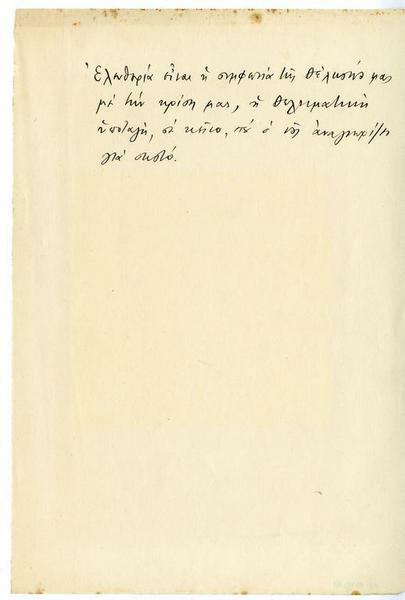 Ἐλευθερία εἶναι ἡ συμφωνία τῆς θέλησής μας
μὲ τὴν κρίση μας, ἡ θεληματικὴ
ὑποταγὴ, σὲ κεῖνο, πού ὁ νοῦς ἀναγνωρίζει
γιὰ σωστό.